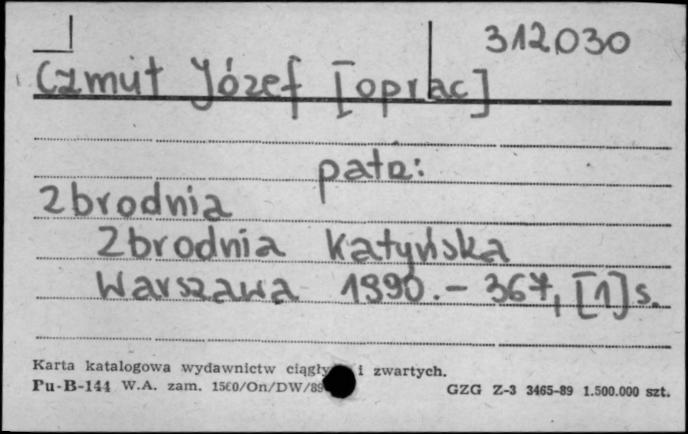 312030
Czmut Józef [oprac]
patrz:
Zbrodnia
Zbrodnia Katyńska
Warszawa 1990. - 367, [1] s.
Karta katalogowa wydawnictw ciągły i zwartych.
Pu-B-144 W.A. zam. 1560/On/DW/89 GZG Z-3 3465-89 1.500.000 szt.